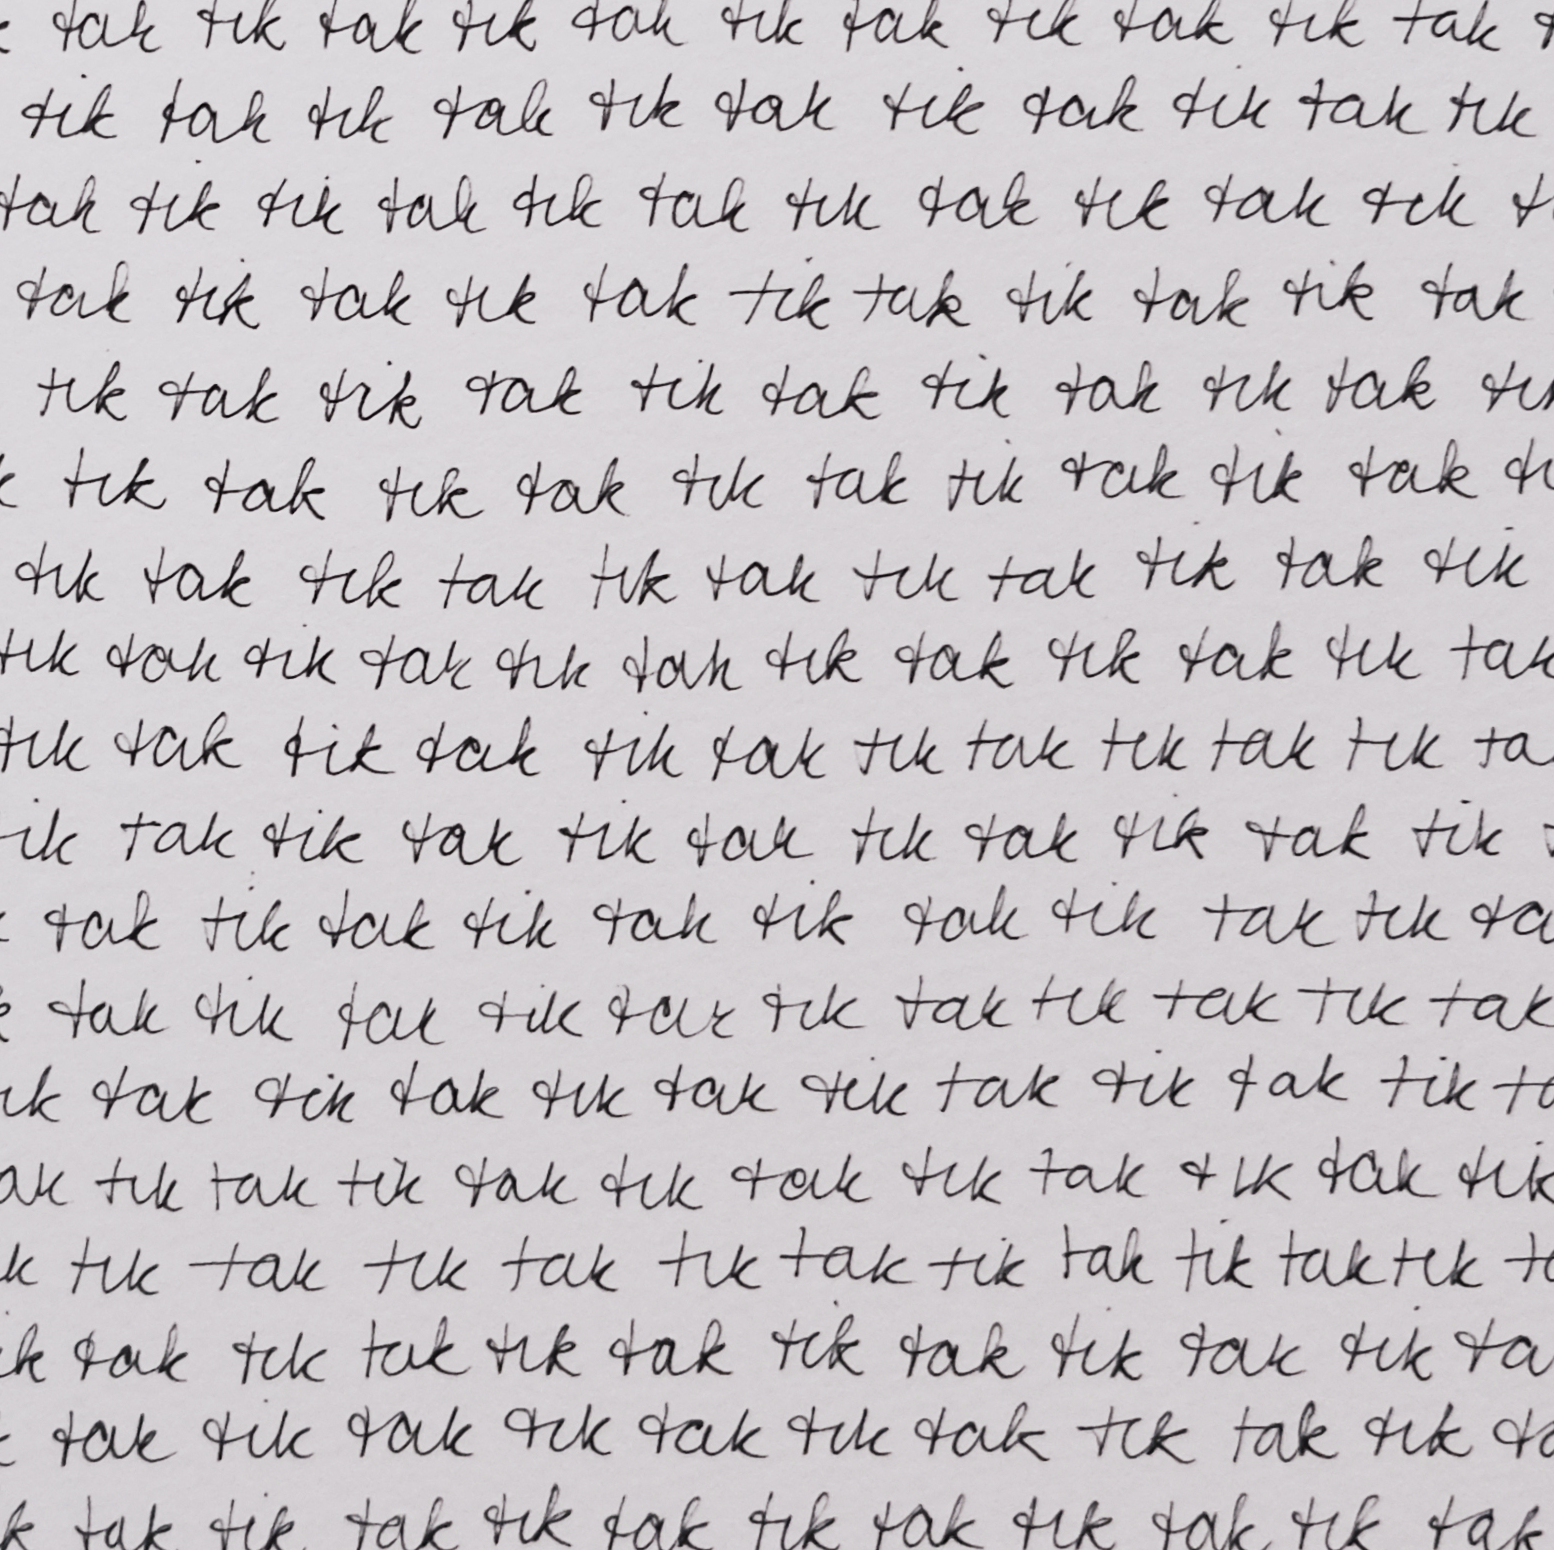 tak tik tak tik tak tik tak tik tak tik tak
tik tak tik tak tik tak tik tak tik tak tik
tak tik tik tak tik tak tik tak tik tak tik
tak tik tak tik tak tik tak tik tak tik tak
tik tak tik tak tik tak tik tak tik tak
tik tak tik tak tik tak tik tak tik tak
tik tak tik tak tik tak tik tak tik tak tik
tik tak tik tak tik tak tik tak tik tak tik tak
tik tak tik tak tik tak tik tak tik tak tik
tik tak tik tak tik tak tik tak tik tak tik
tak tik tak tik tak tik tak tik tak tik
tak tik tak tik tak tik tak tik tak tik tak
tak tik tak tik tak tik tak tik tak tik
tik tak tik tak tik tak tik tak tik tak tik
tik tak tik tak tik tak tik tak tik tak tik
tak tik tak tik tak tik tak tik tak tik
tak tik tak tik tak tik tak tik tak tik
tak tik tak tik tak tik tak tik tak tik tak